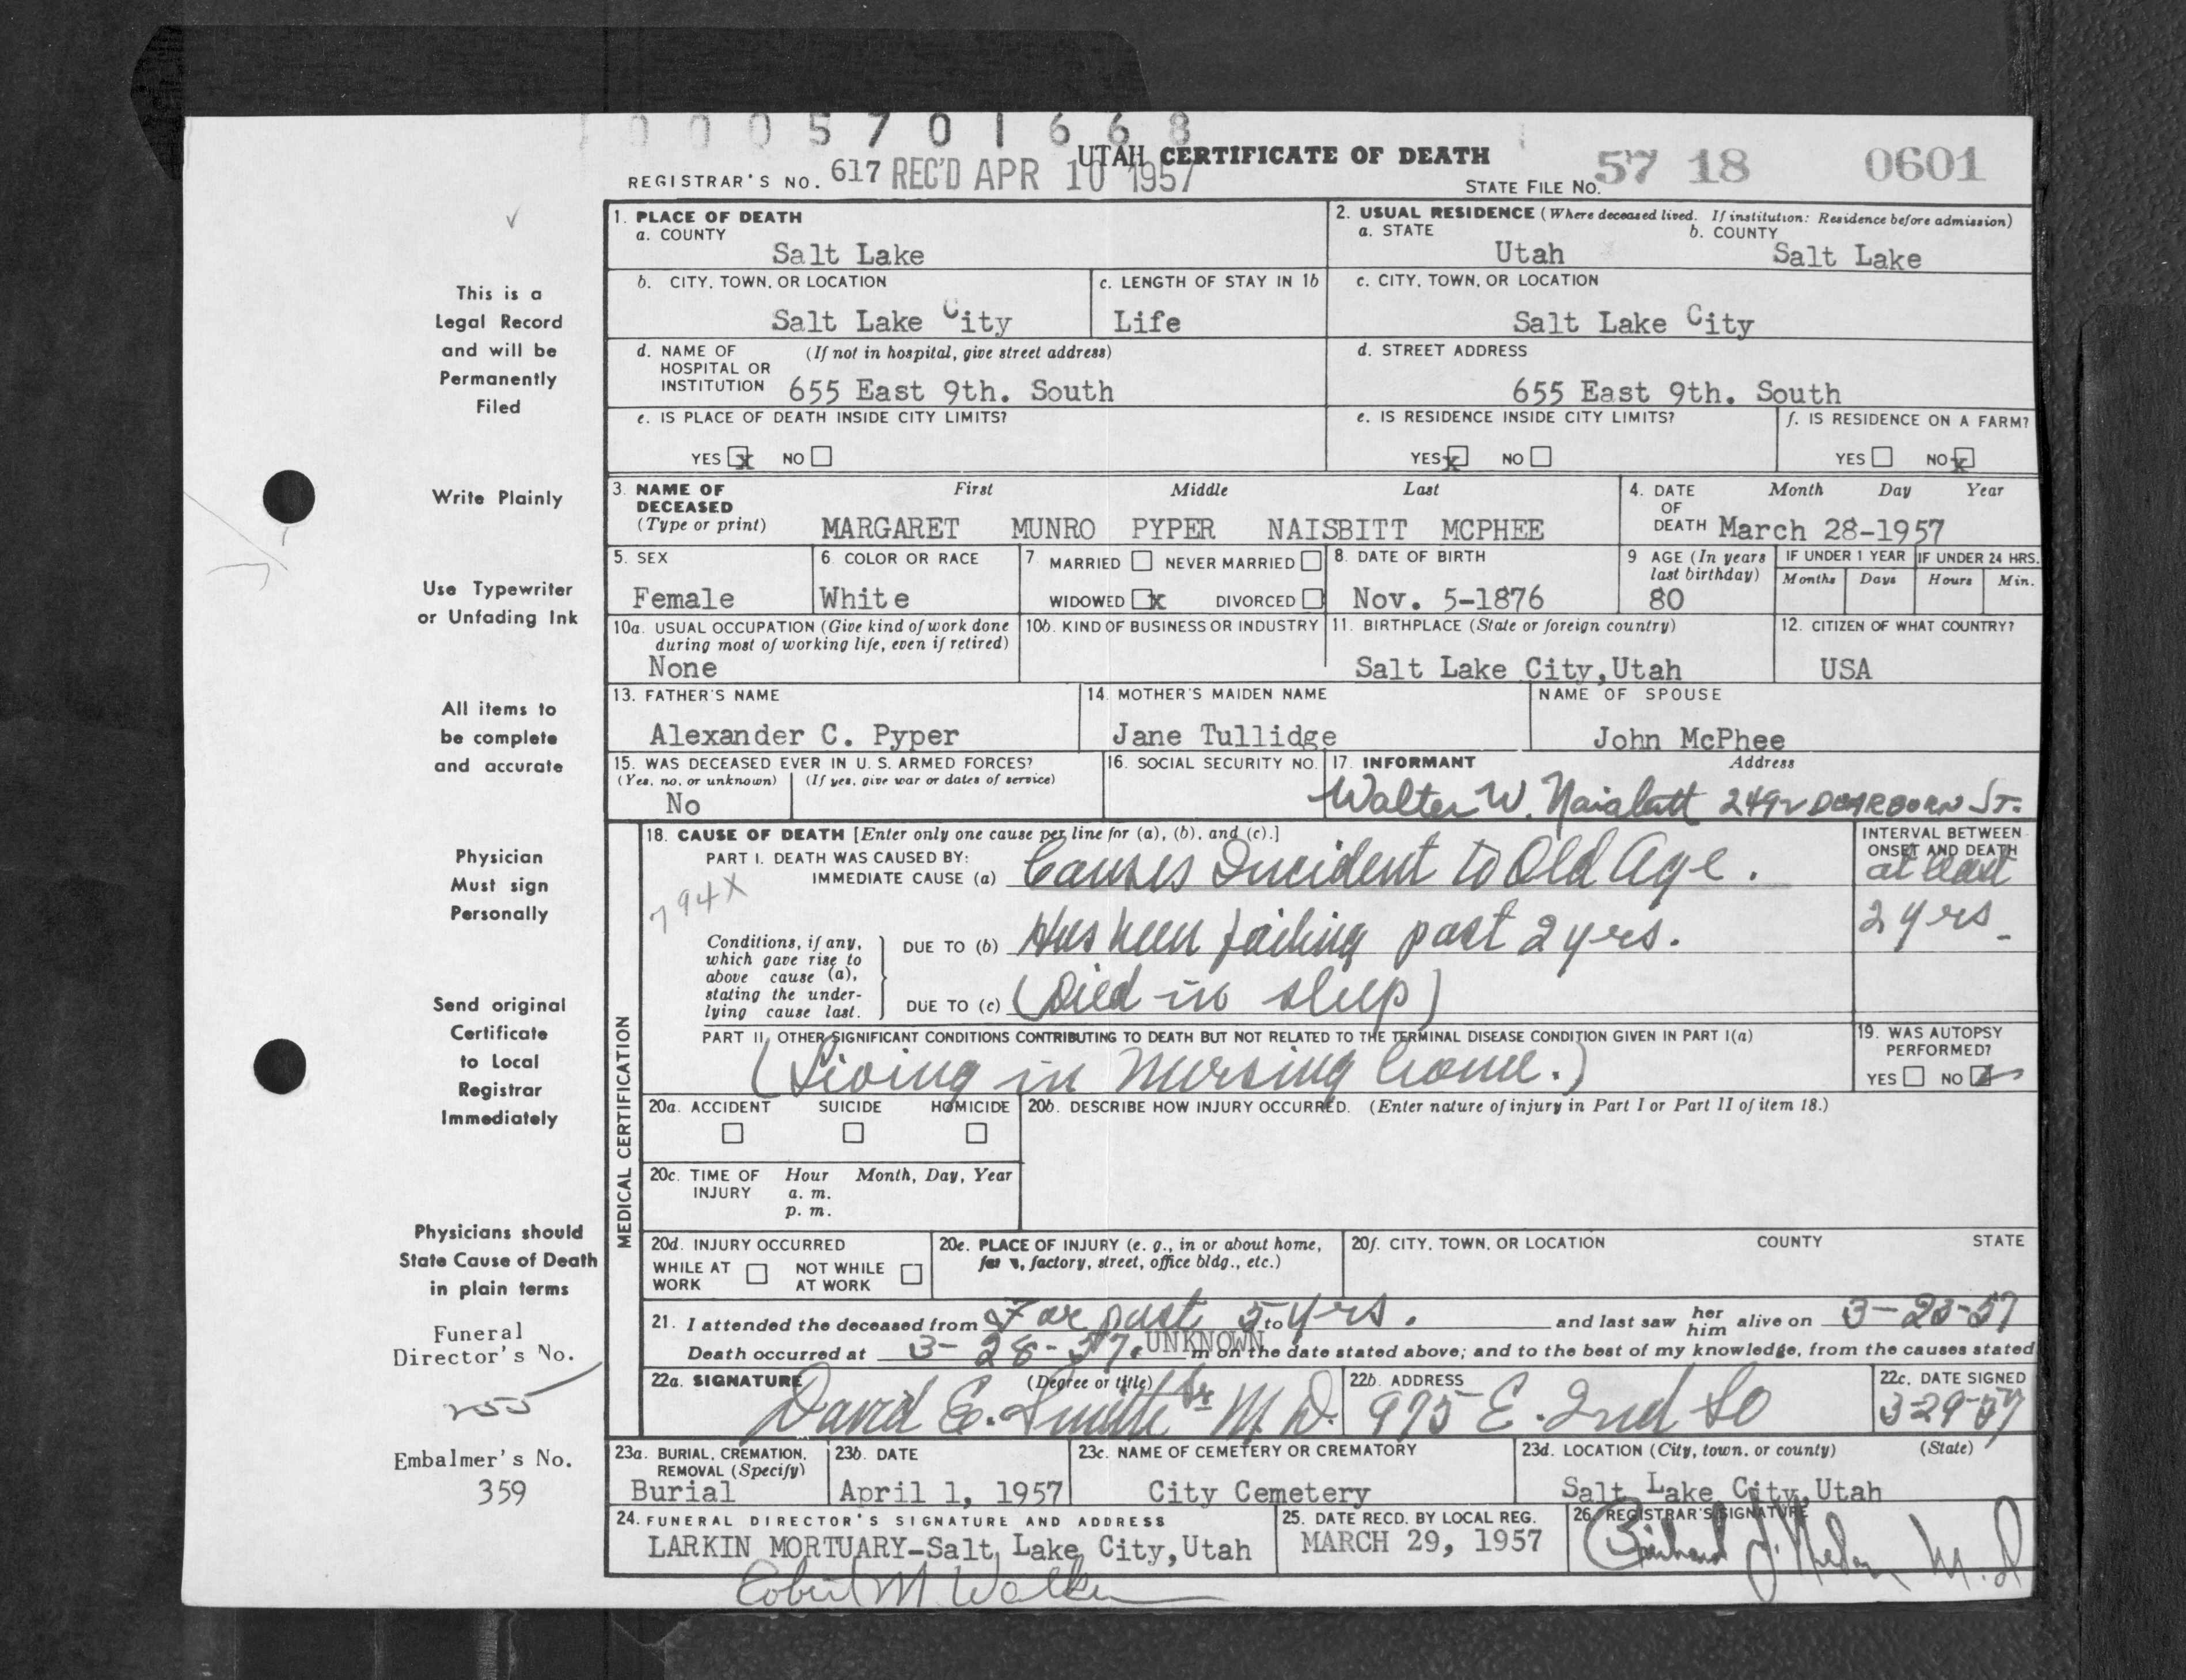 0 0 0 5 7 0 1 6 6 8
UTAH CERTIFICATE OF DEATH
REGISTRAR'S NO. 617 REC'D APR 10 1957
STATE FILE NO. 57 18 0601
This is a
Legal Record
and will be
Permanently
Filed
Write Plainly
Use Typewriter
or Unfading Ink
All items to
be complete
and accurate
Physician
Must sign
Personally
Send original
Certificate
to Local
Registrar
Immediately
Physicians should
State Cause of Death
in plain terms
Funeral
Director's No.
255
Embalmer's No.
359
1. PLACE OF DEATH
a. COUNTY
Salt Lake
2. USUAL RESIDENCE (Where deceased lived. If institution: Residence before admission)
a. STATE b. COUNTY
Utah Salt Lake
b. CITY, TOWN, OR LOCATION
Salt Lake City
c. LENGTH OF STAY IN 1b
Life
c. CITY, TOWN, OR LOCATION
Salt Lake City
d. NAME OF (If not in hospital, give street address)
HOSPITAL OR
INSTITUTION 655 East 9th. South
d. STREET ADDRESS
655 East 9th. South
e. IS PLACE OF DEATH INSIDE CITY LIMITS?
YES x NO
e. IS RESIDENCE INSIDE CITY LIMITS?
YES x NO
f. IS RESIDENCE ON A FARM?
YES NO x
3. NAME OF First Middle Last
DECEASED
(Type or print) MARGARET MUNRO PYPER NAISBITT MCPHEE
4. DATE Month Day Year
OF
DEATH March 28-1957
5. SEX
Female
6. COLOR OR RACE
White
7. MARRIED NEVER MARRIED
WIDOWED x DIVORCED
8. DATE OF BIRTH
Nov. 5-1876
9 AGE (In years
last birthday)
80
IF UNDER 1 YEAR IF UNDER 24 HRS.
Months Days Hours Min.
10a. USUAL OCCUPATION (Give kind of work done
during most of working life, even if retired)
None
10b. KIND OF BUSINESS OR INDUSTRY
11. BIRTHPLACE (State or foreign country)
Salt Lake City,Utah
12. CITIZEN OF WHAT COUNTRY?
USA
13. FATHER'S NAME
Alexander C. Pyper
14. MOTHER'S MAIDEN NAME
Jane Tullidge
NAME OF SPOUSE
John McPhee
15. WAS DECEASED EVER IN U. S. ARMED FORCES?
(Yes, no, or unknown) (If yes, give war or dates of service)
No
16. SOCIAL SECURITY NO.
17. INFORMANT Address
Walter W. Naisbitt 2492 DEARBORN ST.
MEDICAL CERTIFICATION
18. CAUSE OF DEATH [Enter only one cause per line for (a), (b), and (c).]
PART I. DEATH WAS CAUSED BY:
IMMEDIATE CAUSE (a) Causes Incident to Old Age.
794X
INTERVAL BETWEEN
ONSET AND DEATH
at least
2 yrs
Conditions, if any,
which gave rise to
above cause (a),
stating the under-
lying cause last.
DUE TO (b) Has been failing past 2 yrs.
DUE TO (c) (Died in sleep)
PART II. OTHER SIGNIFICANT CONDITIONS CONTRIBUTING TO DEATH BUT NOT RELATED TO THE TERMINAL DISEASE CONDITION GIVEN IN PART I(a)
(Living in Nursing home.)
19. WAS AUTOPSY
PERFORMED?
YES NO
20a. ACCIDENT SUICIDE HOMICIDE
20b. DESCRIBE HOW INJURY OCCURRED. (Enter nature of injury in Part I or Part II of item 18.)
20c. TIME OF Hour Month, Day, Year
INJURY a. m.
p. m.
20d. INJURY OCCURRED
WHILE AT NOT WHILE
WORK AT WORK
20e. PLACE OF INJURY (e. g., in or about home,
farm, factory, street, office bldg., etc.)
20f. CITY, TOWN, OR LOCATION COUNTY STATE
21. I attended the deceased from For past 5 to yrs. and last saw her him alive on 3-23-57
Death occurred at 3-28-57. UNKNOWN m on the date stated above; and to the best of my knowledge, from the causes stated
22a. SIGNATURE (Degree or title)
David E. Smith Sr M.D.
22b. ADDRESS
975 E. 2nd So
22c. DATE SIGNED
3-29-57
23a. BURIAL, CREMATION,
REMOVAL (Specify)
Burial
23b. DATE
April 1, 1957
23c. NAME OF CEMETERY OR CREMATORY
City Cemetery
23d. LOCATION (City, town, or county) (State)
Salt Lake City,Utah
24. FUNERAL DIRECTOR'S SIGNATURE AND ADDRESS
LARKIN MORTUARY-Salt Lake City,Utah
25. DATE RECD. BY LOCAL REG.
MARCH 29, 1957
26. REGISTRAR'S SIGNATURE
M.D
M Walker